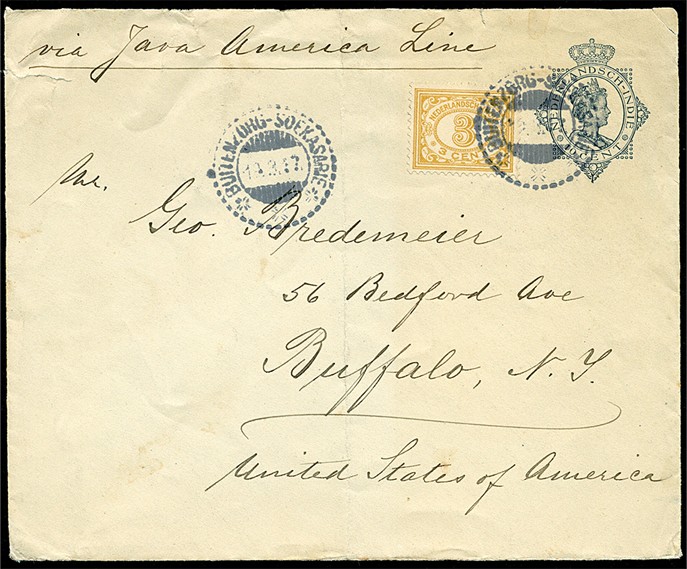 via Java America Line
NEDERLANDSCH-INDIE
10 CENT
NEDERLANDSCH
3
3 CENT
BUITENZORG-SOEKASARIE
BUITENZORG-S
Mr.
Geo. Bredemeier
56 Bedford Ave
Buffalo, N. Y.
United States of America